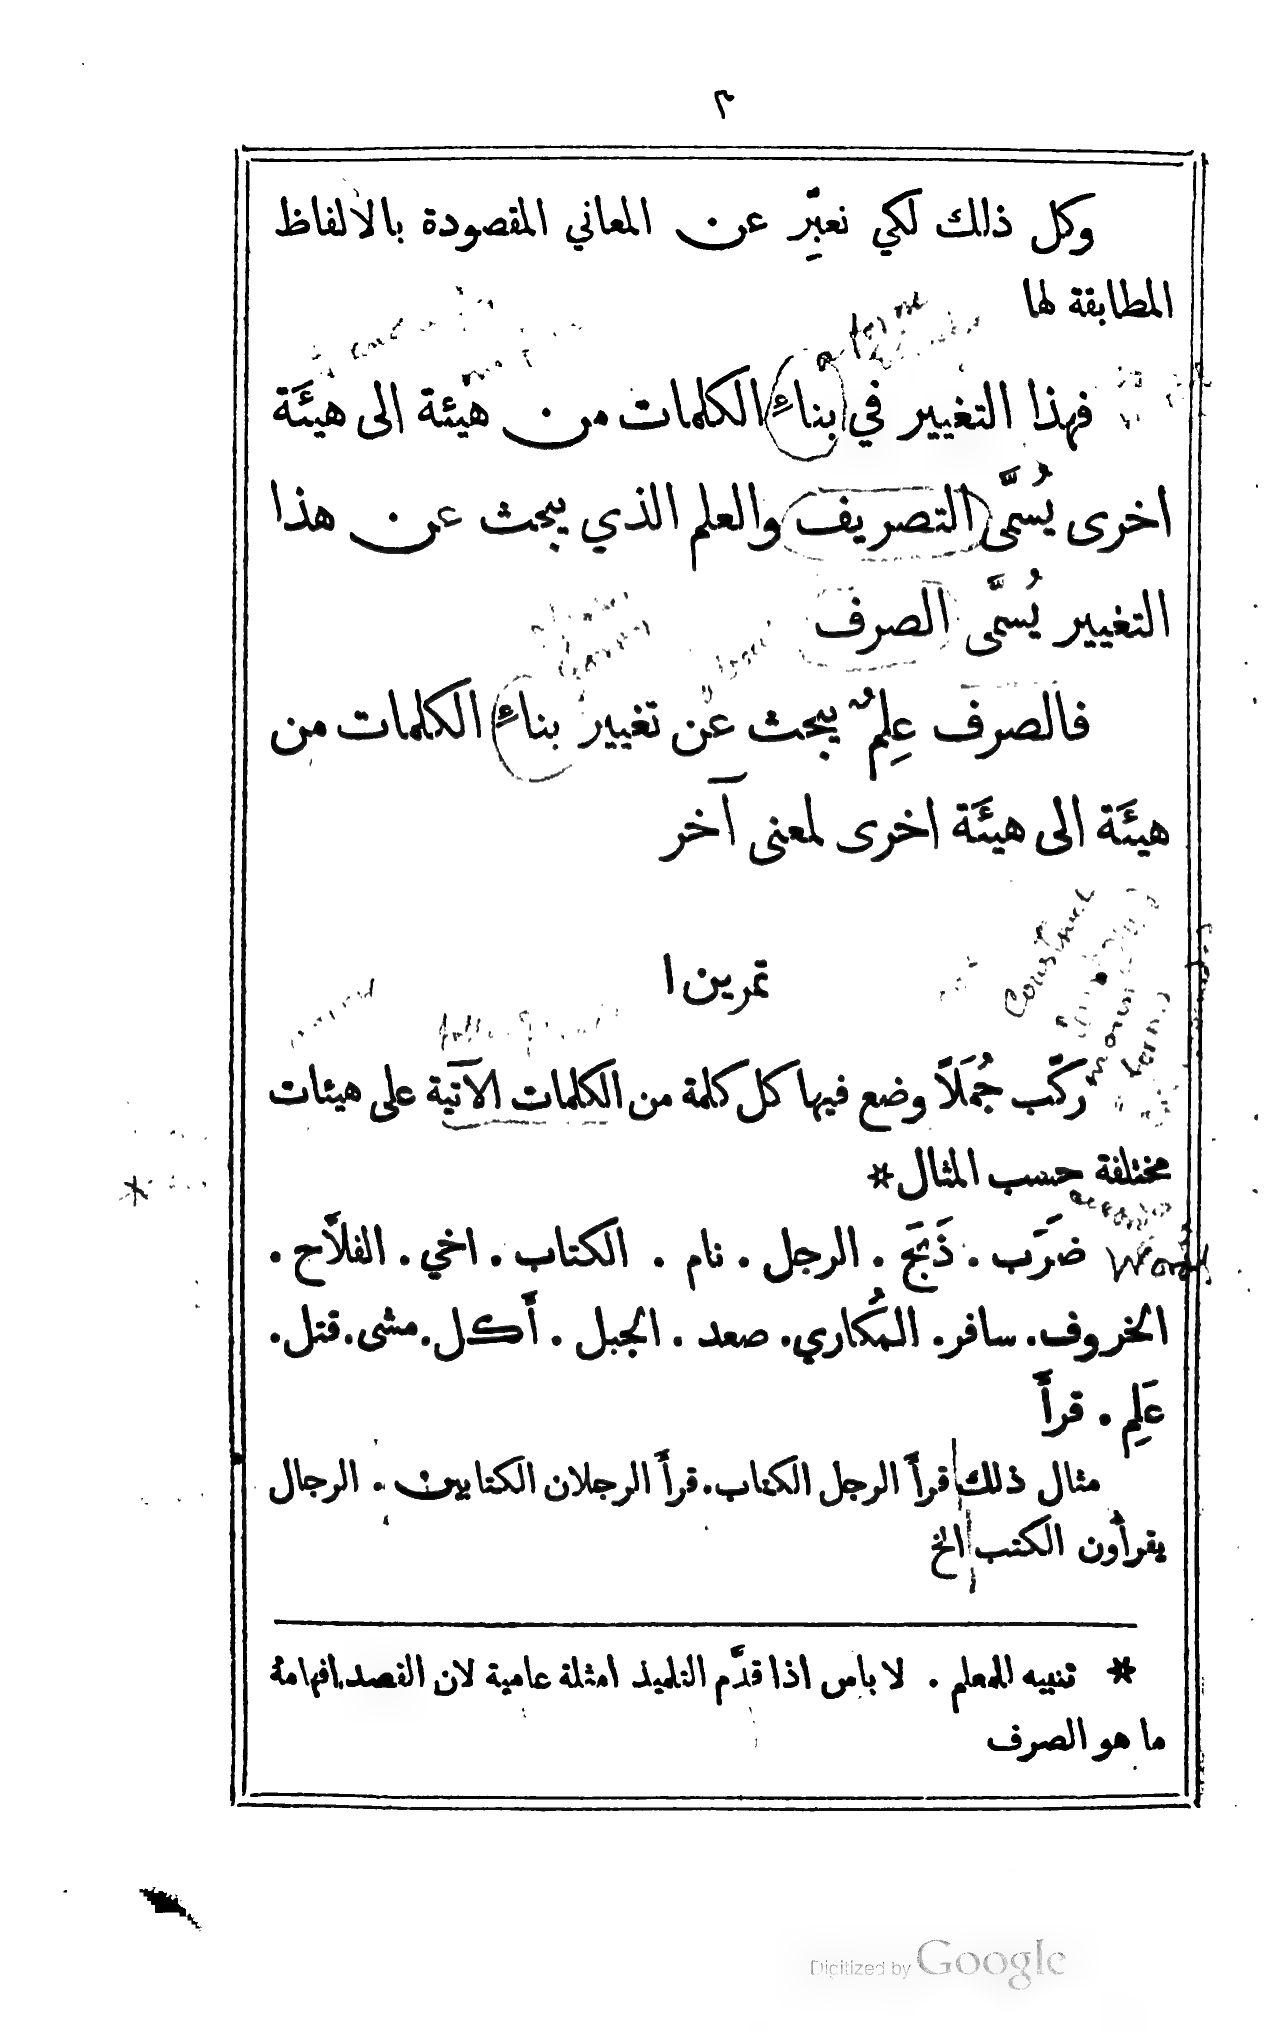 ٢
وكل ذلك لكي نعبِّرِ عن المعاني المقصودة بالالفاظ
المطابقة لها
فهذا التغيير في بناءِ الكلمات من هيئة الى هيئَة
اخرى يُسمَّى التصريف والعلم الذي يبحث عن هذا
التغيير يُسمَّى الصرف
فالصرف عِلمٌ يبحث عن تغيير بناءِ الكلمات من
هيئَة الى هيئَة اخرى لمعنى آخر
تمرين ١
Construct
ركّب جُمَلاً وضع فيها كل كلمة من الكلمات الآتية على هيئات
مختلفة حسب المثال*
ضرَب . ذَبَح . الرجل . نام . الكتاب . اخي . الفلاَّح .
الخروف . سافر . المُكاري . صعد . الجبل . أَكل . مشى . قتل .
عَلِم . قرأَ
مثال ذلك قرأَ الرجل الكتاب . قرأَ الرجلان الكتابين . الرجال
يقرأُون الكتب الخ
* تنبيه للمعلم . لا باس اذا قدَّم التلميذ امثلة عامية لان القصد افهامهُ
ما هو الصرف
Digitized by Google